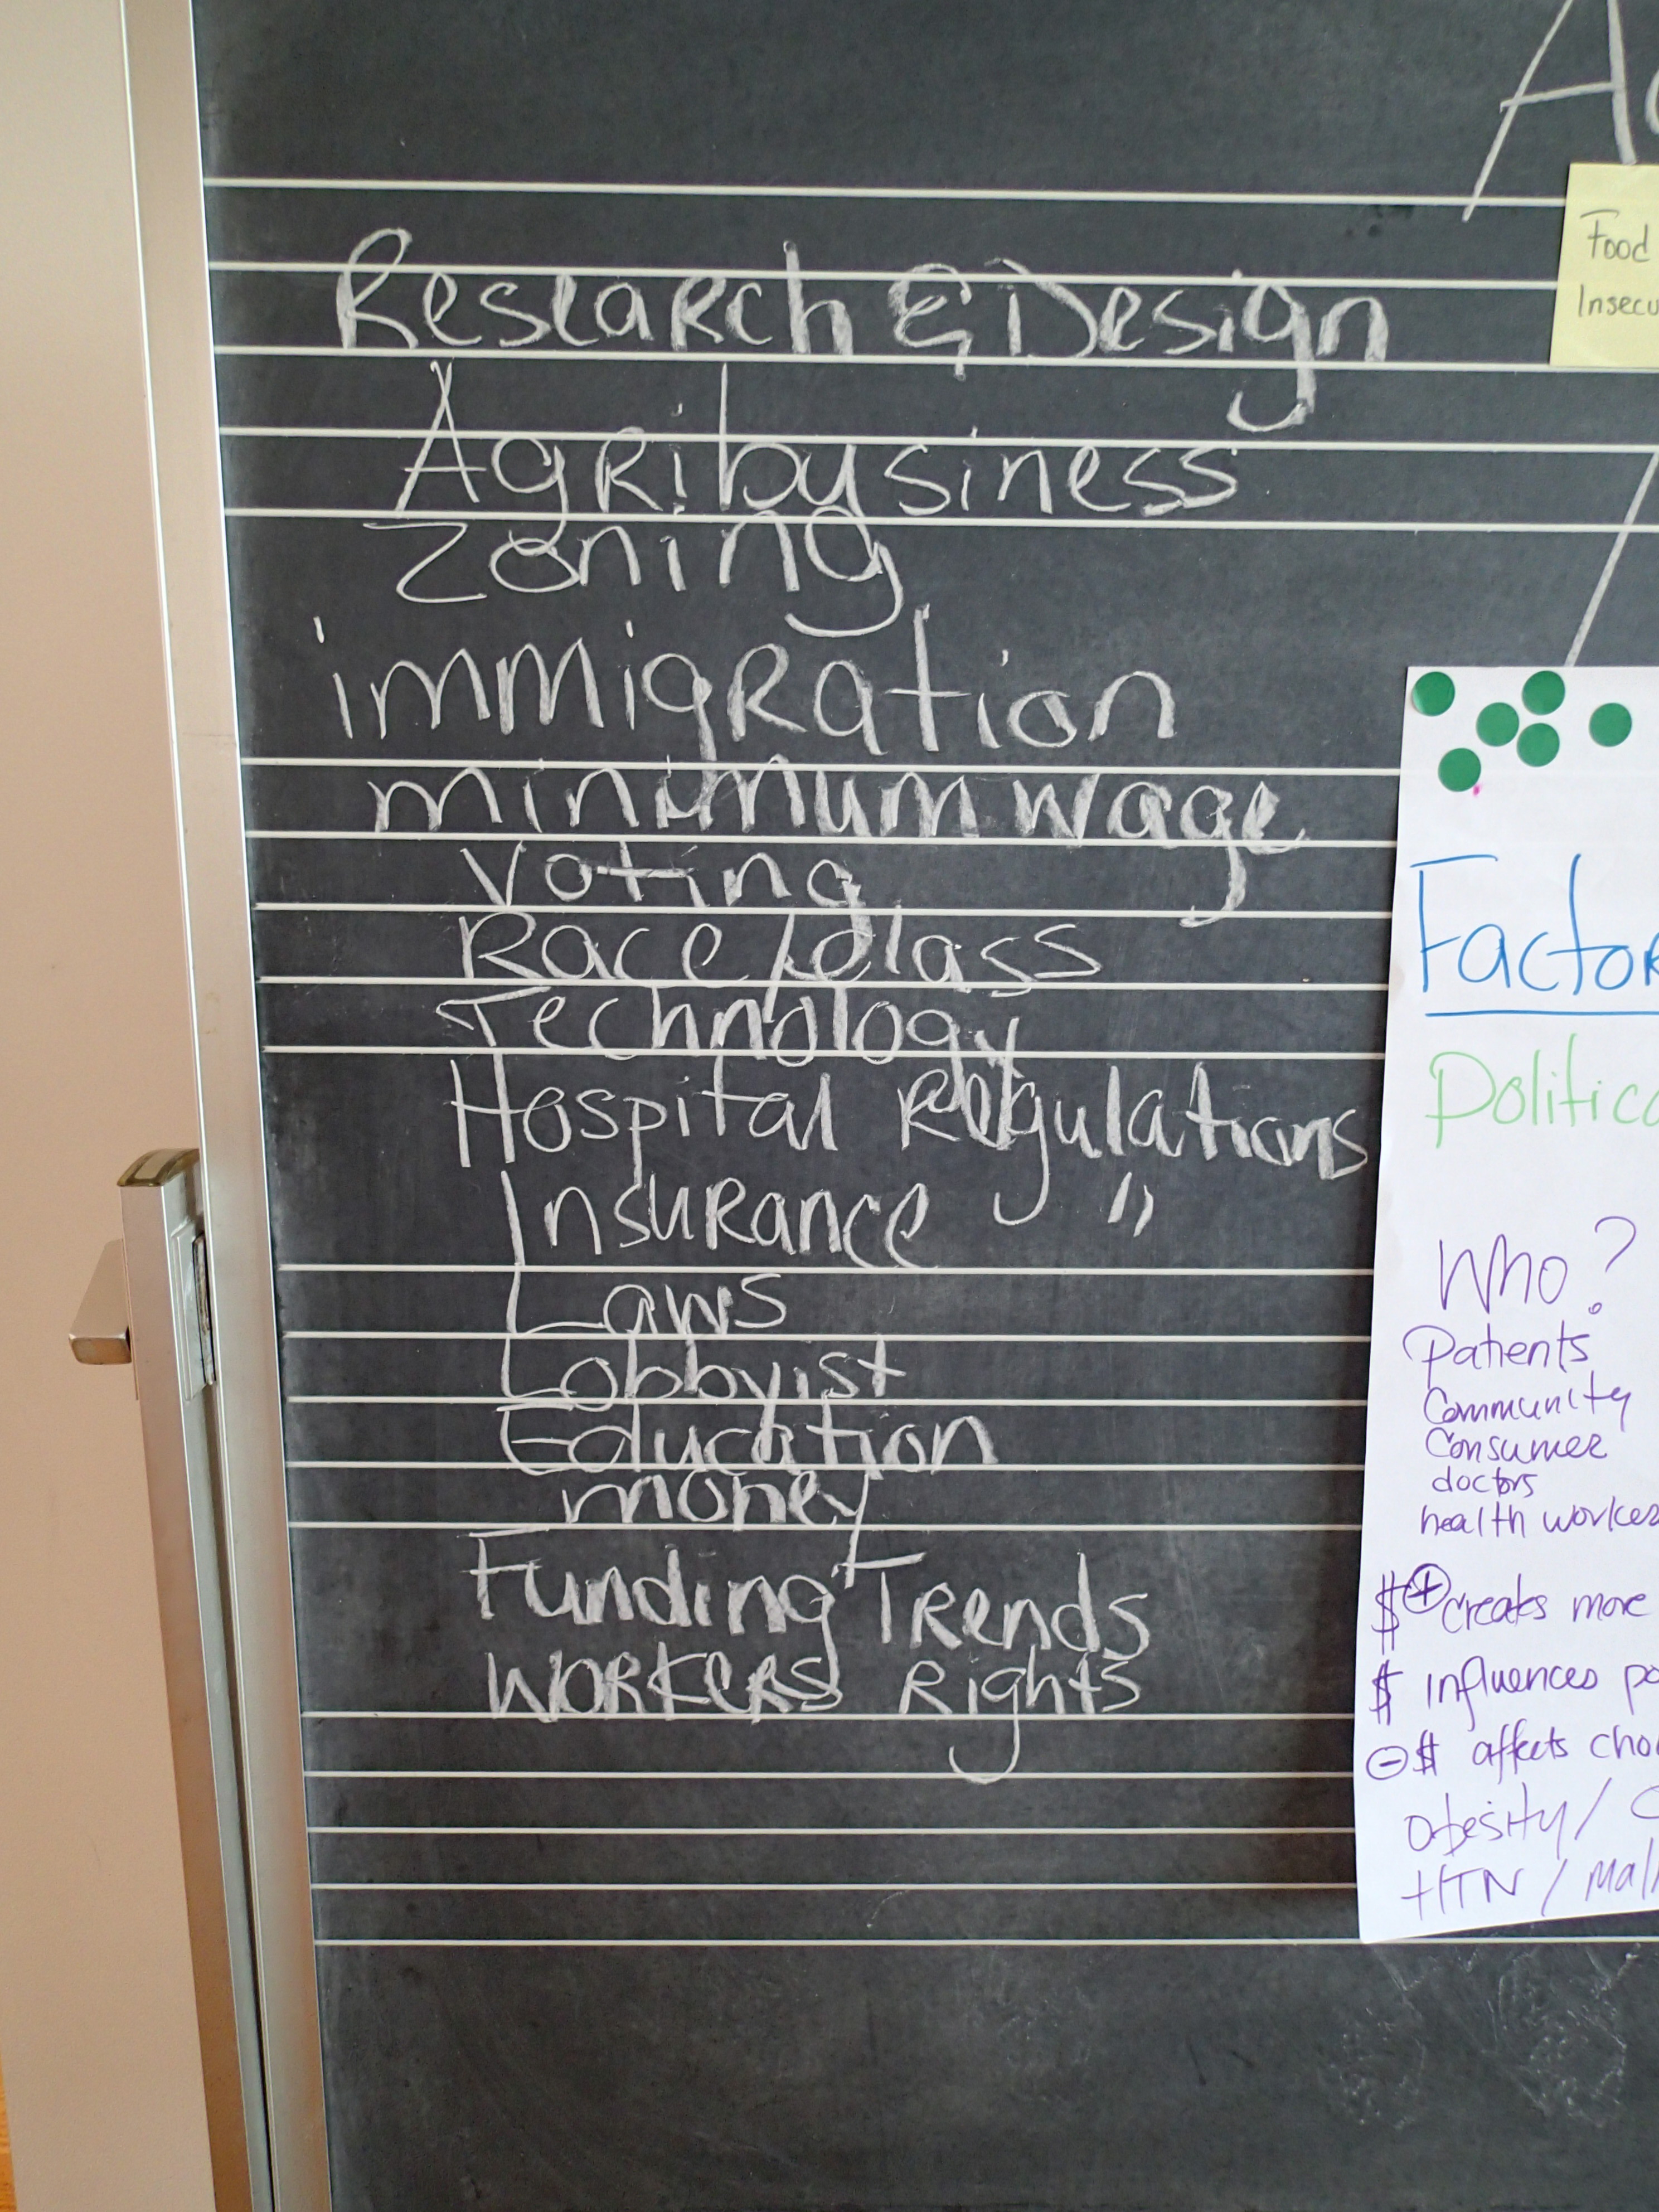 Research & Design
Agribusiness
Zoning
immigration
minimum wage
Voting
Race/class
Technology
Hospital Regulations
Insurance "
Laws
Lobbyist
Education
money
Funding Trends
WORKERS Rights
Food
Factor
Politic
Who?
Patients
Community
Consumer
doctors
health worker
$ + creates more
$ influences
- $ affects
Obesity/
HTN /